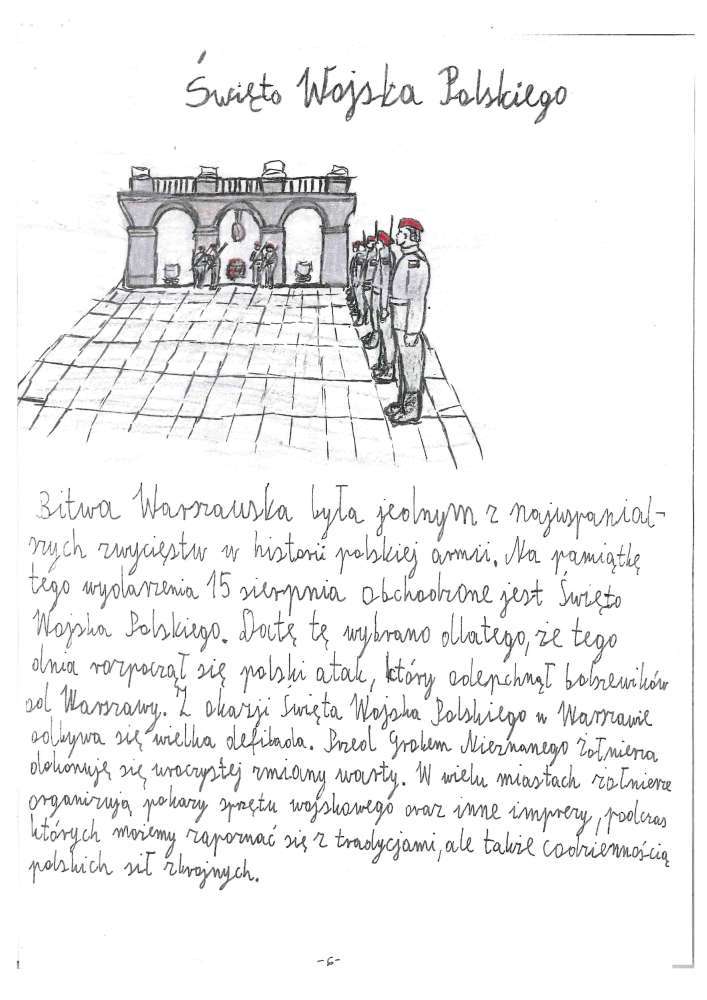 Święto Wojska Polskiego
Bitwa Warszawska była jednym z najwspanial-
szych zwycięstw w historii polskiej armii. Na pamiątkę
tego wydarzenia 15 sierpnia obchodzone jest Święto
Wojska Polskiego. Datę tę wybrano dlatego, że tego
dnia rozpoczął się polski atak, który odepchnął bolszewików
od Warszawy. Z okazji Święta Wojska Polskiego w Warszawie
odbywa się wielka defilada. Przed Grobem Nieznanego Żołnierza
dokonuję się uroczystej zmiany warty. W wielu miastach żołnierze
organizują pokazy sprzętu wojskowego oraz inne imprezy, podczas
których możemy zapoznać się z tradycjami, ale także codziennością
polskich sił zbrojnych.
-6-